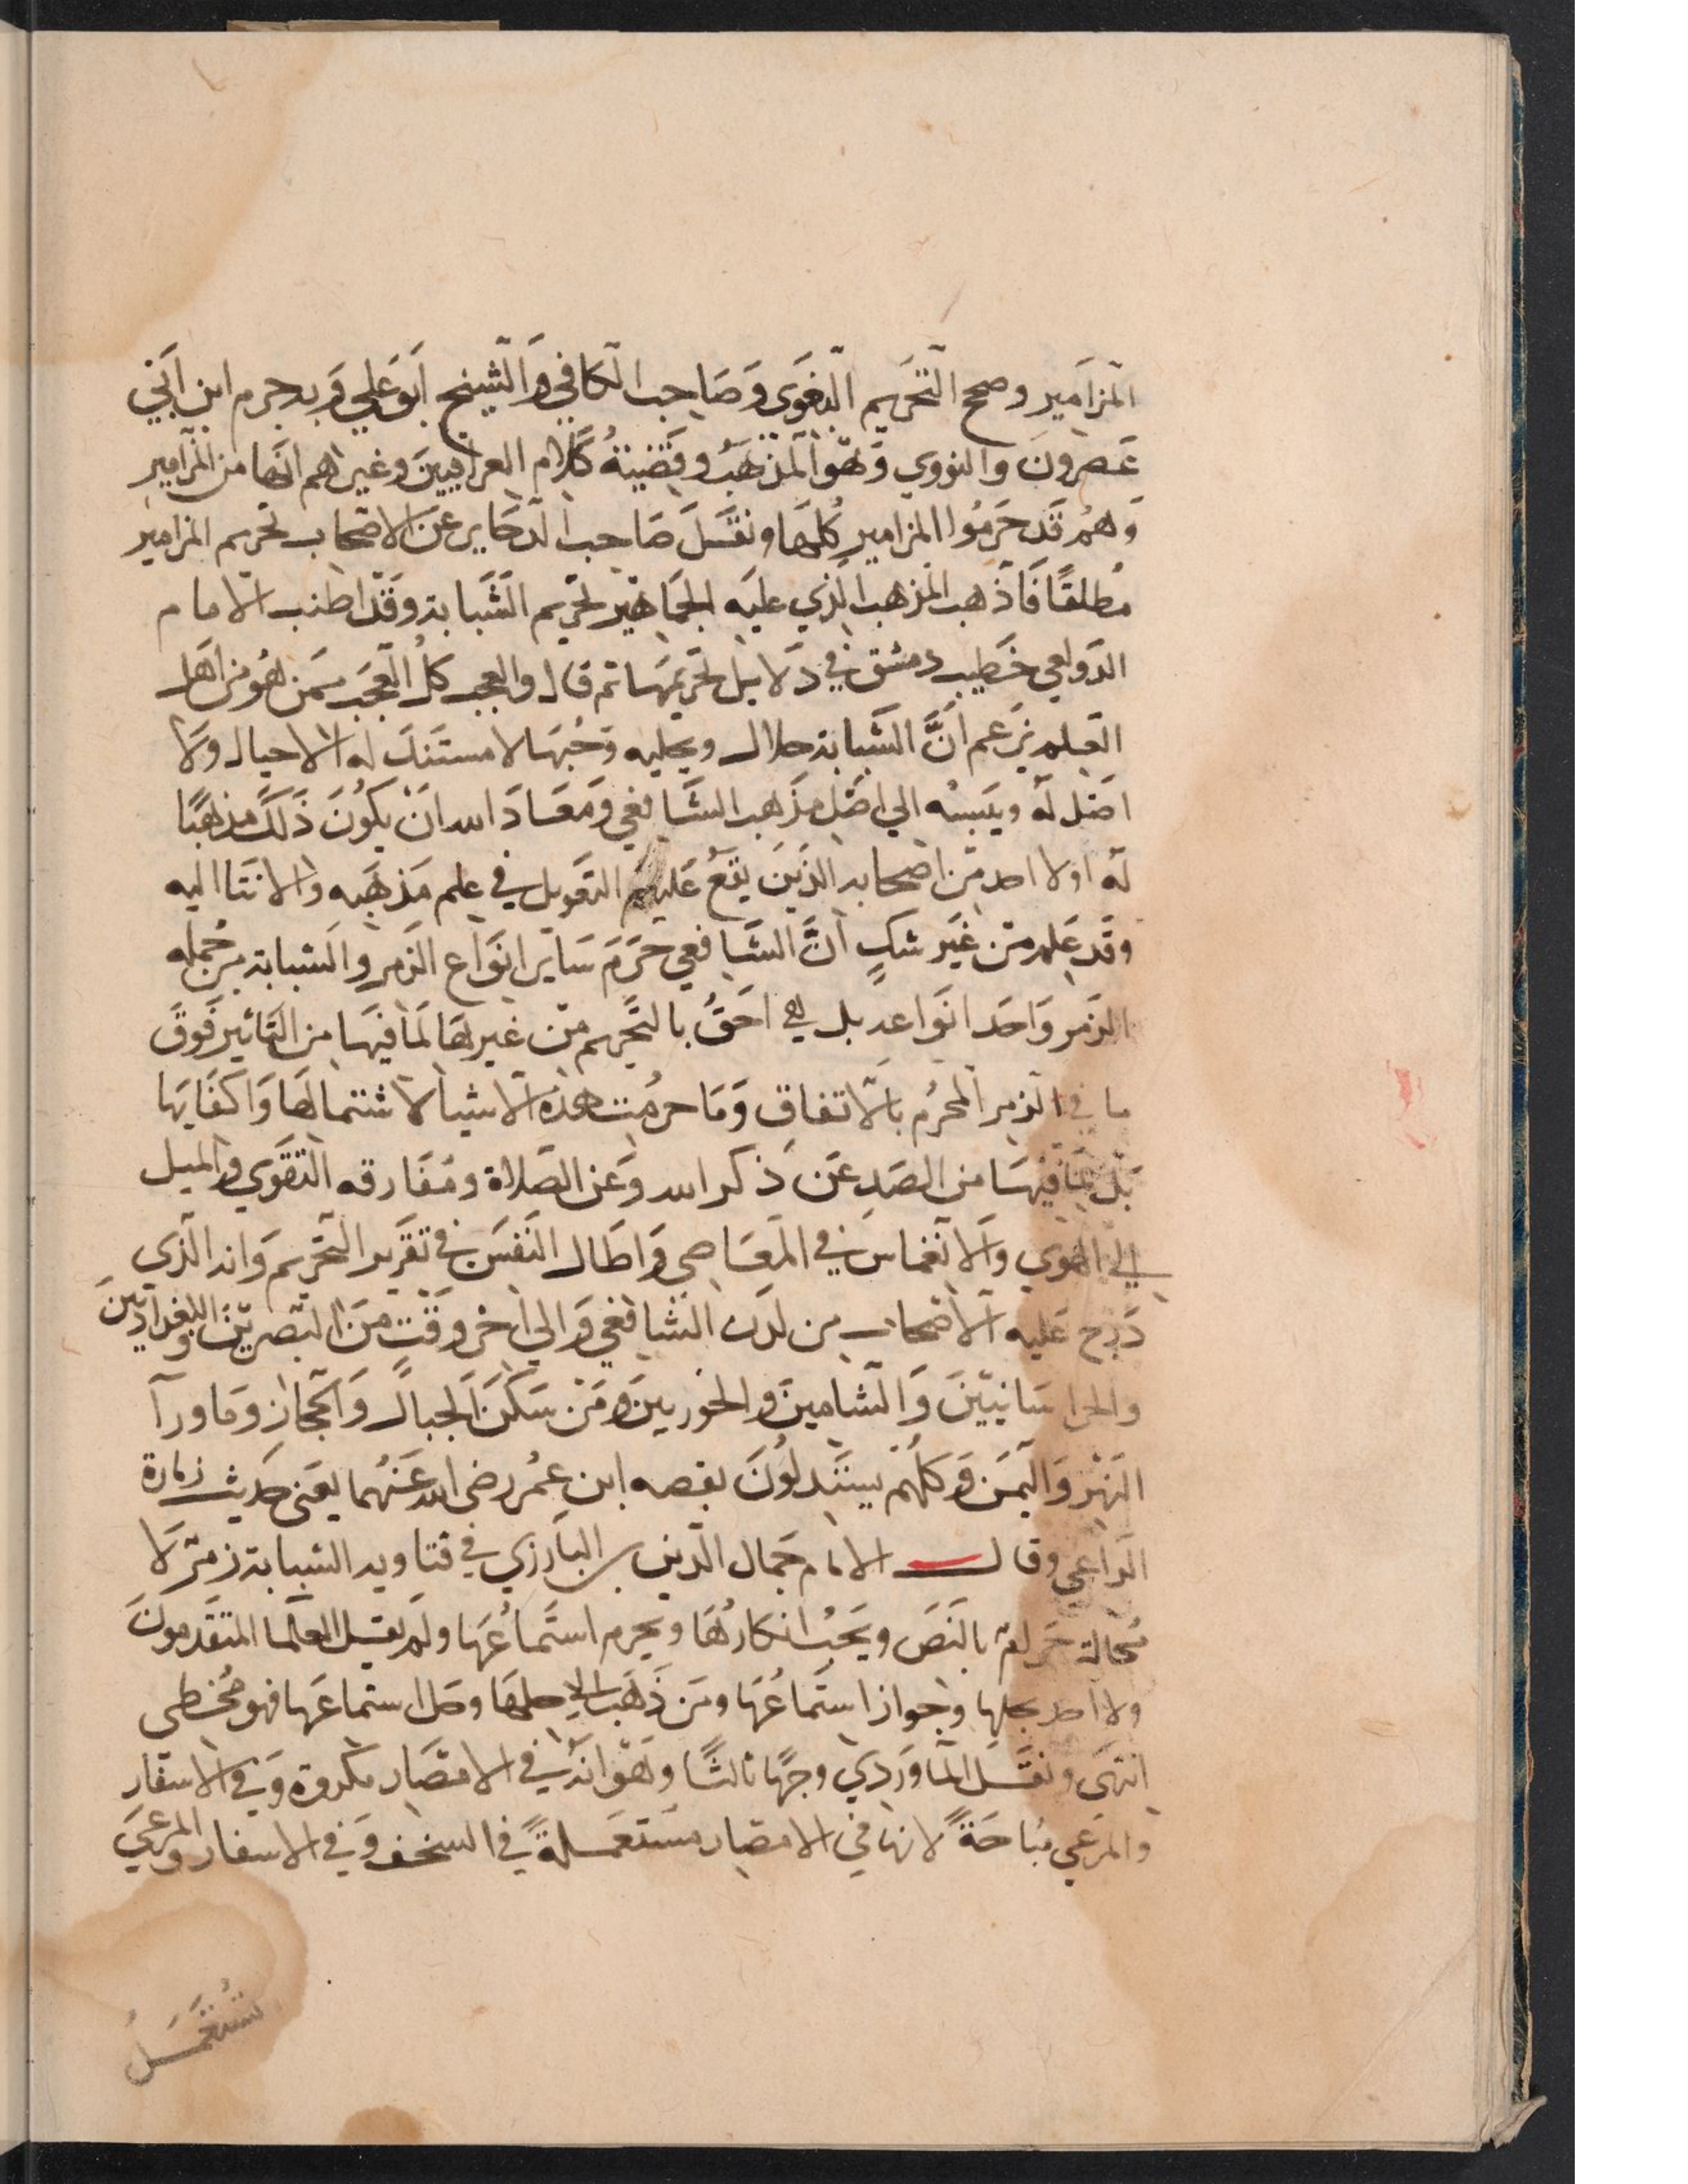 المزامير وصحح التحريم البغوي وصاحب الكافي والشيخ ابو علي وبه جزم ابن ابي
عصرون والنووي وهو المذهب وقضية كلام العراقيين وغيرهم انها من المزامير
وهم قد حرموا المزامير كلها ونقل صاحب الدخاير عن الاصحاب تحريم المزامير
مطلقا فاذهب المذهب الذي عليه الجماهير تحريم الشبابة وقد اطنب الامام
الدولعي خطيب دمشق في دلايل تحريمها ثم قال والعجب كل العجب ممن هو من اهل
العلم يزعم ان الشبابة حلال ويحليه وجها لا مستند له الا خيال ولا
اصل له وينسبه الي اصل مذهب الشافعي ومعاذ الله ان يكون ذلك مذهبا
له او لا احد من اصحابه الذين يقع عليهم التعويل في علم مذهبه والانتما اليه
وقد علم من غير شك ان الشافعي حرم ساير انواع الزمر والشبابة من جمله
الزمر واحد انواعه بل هي احق بالتحريم من غيرها لما فيها من التاثير فوق
ما في الزمر المحرم بالاتفاق وما حرمت هذه الاشيا لا شتمالها واكفايها
بل لما فيها من الصد عن ذكر الله وعن الصلاة ومفارقه التقوي والميل
الي الهوي والانغماس في المعاصي واطال النفس في تقرير التحريم وانه الذي
درج عليه الاصحاب من لدن الشافعي والي اخر وقت من البصريين والبغداديين
والخراسانيين والشاميين والخوريين ومن سكن الجبال والحجاز وما ورآ
النهر واليمن وكلهم يستدلون بقصه ابن عمر رضي الله عنهما يعني حديث زمارة
الراعي وقال الامام جمال الدين بن البارزي في فتاويه الشبابة زمر لا
محالة حرام بالنص ويجب انكارها ويحرم استماعها ولم يقل العلما المتقدمون
ولا احد بحلها وجواز استماعها ومن ذهب الي حلها وحل استماعها فهو مخطي
انتهي ونقل الماوردي وجها ثالثا وهو انه في الامصار مكروه وفي الاسفار
والمرعي مباحة لانها في الامصار مستعملة في السخف وفي الاسفار والمرعي
تستعمل